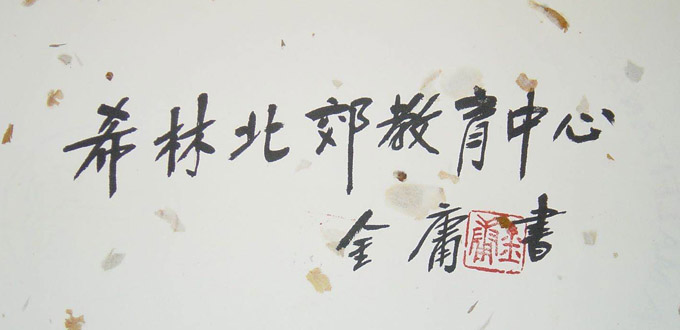 希林北郊教育中心
金庸書
金庸